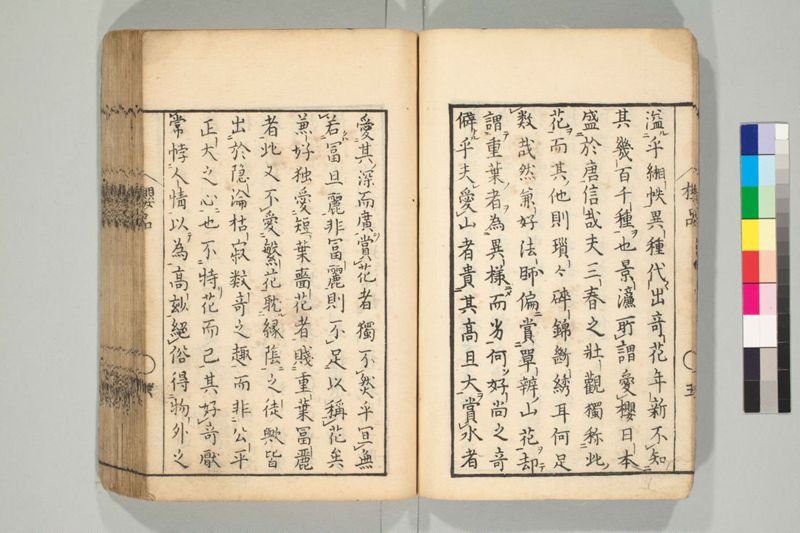 溢乎緗帙異種代出奇花年新不知
其幾百千種也景濂所謂愛櫻日本
盛於唐信哉夫三春之壯觀獨称此
花而其他則瑣々碎錦斷綉耳何足
数哉然兼好法師偏賞單辨山花却
謂重葉者為異様而劣何好尚之奇
僻乎夫愛山者貴其高且大賞水者
愛其深而廣賞花者獨不然乎宜無
若冨且麗非冨麗則不足以稱花矣
兼好独愛短葉嗇花者賤重葉冨麗
者此又不愛繁花耽緑陰之徒歟皆
出於隠淪枯寂数奇之趣而非公平
正大之心也不特花而已其好奇厭
常悖人情以為高妙絕俗得物外之
櫻品
櫻品
五